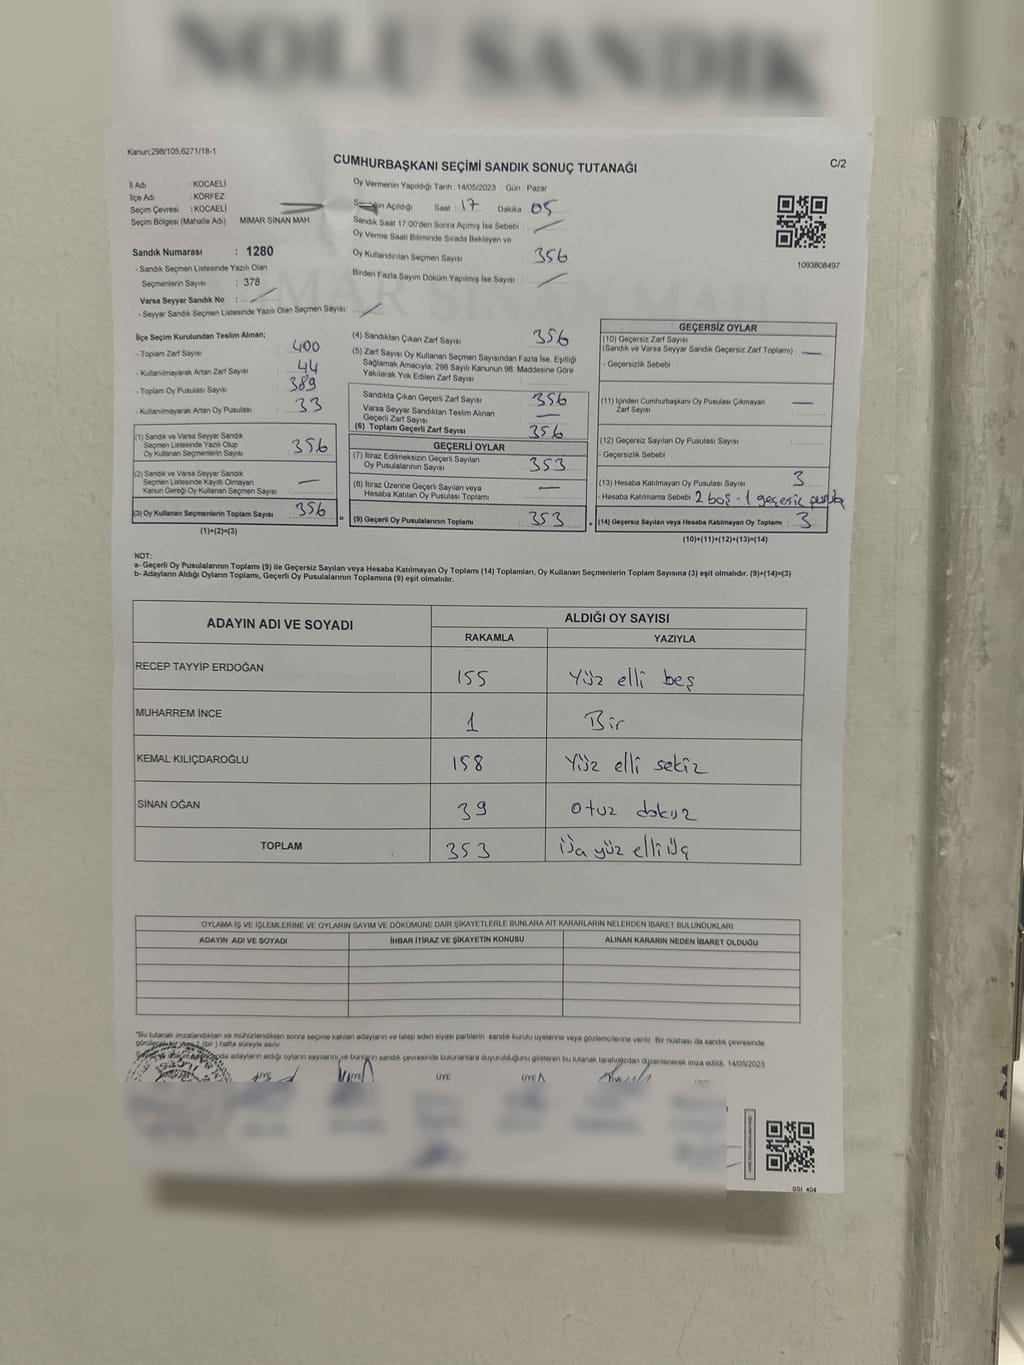 NOLU SANDIK
Kanun;298/105;6271/18-1
CUMHURBAŞKANI SEÇİMİ SANDIK SONUÇ TUTANAĞI
C/2
İl Adı : KOCAELİ
İlçe Adı : KÖRFEZ
Seçim Çevresi : KOCAELİ
Seçim Bölgesi (Mahalle Adı) MİMAR SİNAN MAH.
Sandık Numarası : 1280
- Sandık Seçmen Listesinde Yazılı Olan
Seçmenlerin Sayısı : 378
Varsa Seyyar Sandık No :
- Seyyar Sandık Seçmen Listesinde Yazılı Olan Seçmen Sayısı:
Oy Vermenin Yapıldığı Tarih : 14/05/2023 Gün : Pazar
Açıldığı Saat : 17 Dakika 05
Sandık Saat 17:00'den Sonra Açımış İse Sebebi :
Oy Verme Saati Bitiminde Sırada Bekleyen ve
Oy Kullandırılan Seçmen Sayısı : 356
Birden Fazla Sayım Döküm Yapılmış İse Sayısı :
1093808497
İlçe Seçim Kurulundan Teslim Alınan;
- Toplam Zarf Sayısı 400
- Kullanılmayarak Artan Zarf Sayısı 44
- Toplam Oy Pusulası Sayısı 389
- Kullanılmayarak Artan Oy Pusulası 33
(1) Sandık ve Varsa Seyyar Sandık
Seçmen Listesinde Yazılı Olup
Oy Kullanan Seçmenlerin Sayısı 356
(2) Sandık ve Varsa Seyyar Sandık
Seçmen Listesinde Kayıtlı Olmayan
Kanun Gereği Oy Kullanan Seçmen Sayısı —
(3) Oy Kullanan Seçmenlerin Toplam Sayısı 356
(1)+(2)=(3)
(4) Sandıktan Çıkan Zarf Sayısı 356
(5) Zarf Sayısı Oy Kullanan Seçmen Sayısından Fazla İse, Eşitliği
Sağlamak Amacıyla; 298 Sayılı Kanunun 98. Maddesine Göre
Yakılarak Yok Edilen Zarf Sayısı
Sandıkta Çıkan Geçerli Zarf Sayısı 356
Varsa Seyyar Sandıktan Teslim Alınan
Geçerli Zarf Sayısı —
(6) Toplam Geçerli Zarf Sayısı 356
GEÇERLİ OYLAR
(7) İtiraz Edilmeksizin Geçerli Sayılan
Oy Pusulalarının Sayısı 353
(8) İtiraz Üzerine Geçerli Sayılan veya
Hesaba Katılan Oy Pusulası Toplamı —
= (9) Geçerli Oy Pusulalarının Toplamı 353
GEÇERSİZ OYLAR
(10) Geçersiz Zarf Sayısı
(Sandık ve Varsa Seyyar Sandık Geçersiz Zarf Toplamı) : —
- Geçersizlik Sebebi :
(11) İçinden Cumhurbaşkanı Oy Pusulası Çıkmayan
Zarf Sayısı —
(12) Geçersiz Sayılan Oy Pusulası Sayısı
- Geçersizlik Sebebi :
(13) Hesaba Katılmayan Oy Pusulası Sayısı 3
- Hesaba Katılmama Sebebi 2 boş - 1 geçersiz pusula
+ (14) Geçersiz Sayılan veya Hesaba Katılmayan Oy Toplamı : 3
(10)+(11)+(12)+(13)=(14)
NOT:
a- Geçerli Oy Pusulalarının Toplamı (9) ile Geçersiz Sayılan veya Hesaba Katılmayan Oy Toplamı (14) Toplamları, Oy Kullanan Seçmenlerin Toplam Sayısına (3) eşit olmalıdır. (9)+(14)=(3)
b- Adayların Aldığı Oyların Toplamı, Geçerli Oy Pusulalarının Toplamına (9) eşit olmalıdır.
ADAYIN ADI VE SOYADI ALDIĞI OY SAYISI
RAKAMLA YAZIYLA
RECEP TAYYİP ERDOĞAN 155 Yüz elli beş
MUHARREM İNCE 1 Bir
KEMAL KILIÇDAROĞLU 158 Yüz elli sekiz
SİNAN OĞAN 39 otuz dokuz
TOPLAM 353 yüz elli üç
OYLAMA İŞ VE İŞLEMLERİNE VE OYLARIN SAYIM VE DÖKÜMÜNE DAİR ŞİKAYETLERLE BUNLARA AİT KARARLARIN NELERDEN İBARET BULUNDUKLARI
ADAYIN ADI VE SOYADI İHBAR İTİRAZ VE ŞİKAYETİN KONUSU ALINAN KARARIN NEDEN İBARET OLDUĞU
"Bu tutanak imzalandıktan ve mühürlendikten sonra seçime katılan adayların ve talep eden siyasi partilerin sandık kurulu üyelerine veya gözlemcilerine verilir. Bir nüshası da sandık çevresinde
(bir) hafta süreyle asılır.
adayların aldığı oyların sayılarını ve bunların sandık çevresinde bulunanlara duyurulduğunu gösteren bu tutanak tarafımızdan düzenlenerek imza edildi. 14/05/2023
ÜYE ÜYE ÜYE ÜYE
SSI 404